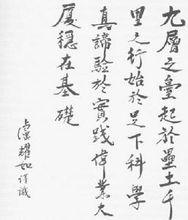 九層之臺起於壘土千
里之行始於足下科學
真諦驗於實踐偉業大
廈穩在基礎
盧耀如